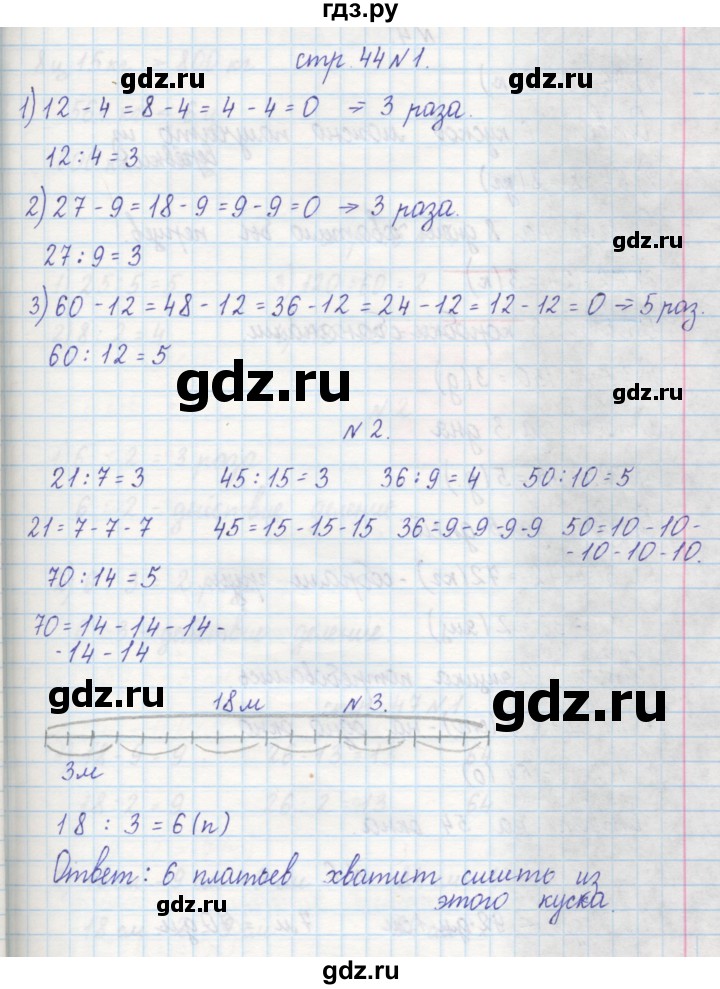 гдз.ру
стр. 44 N 1.
gdz.ru
gdz.ru
1) 12 - 4 = 8 - 4 = 4 - 4 = 0 ⇒ 3 раза.
12 : 4 = 3
2) 27 - 9 = 18 - 9 = 9 - 9 = 0 ⇒ 3 раза.
gdz.ru
27 : 9 = 3
3) 60 - 12 = 48 - 12 = 36 - 12 = 24 - 12 = 12 - 12 = 0 ⇒ 5 раз.
60 : 12 = 5
gdz.ru
gdz.ru
N 2.
21 : 7 = 3 45 : 15 = 3 36 : 9 = 4 50 : 10 = 5
21 = 7 - 7 - 7 45 = 15 - 15 - 15 36 = 9 - 9 - 9 - 9 50 = 10 - 10 -
- 10 - 10 - 10.
gdz.ru
70 : 14 = 5
70 = 14 - 14 - 14 -
- 14 - 14
gdz.ru
gdz.ru
18 м N 3.
3м
18 : 3 = 6 (п)
Ответ: 6 платьев хватит сшить из
этого куска.
gdz.ru
gdz.ru
gdz.ru